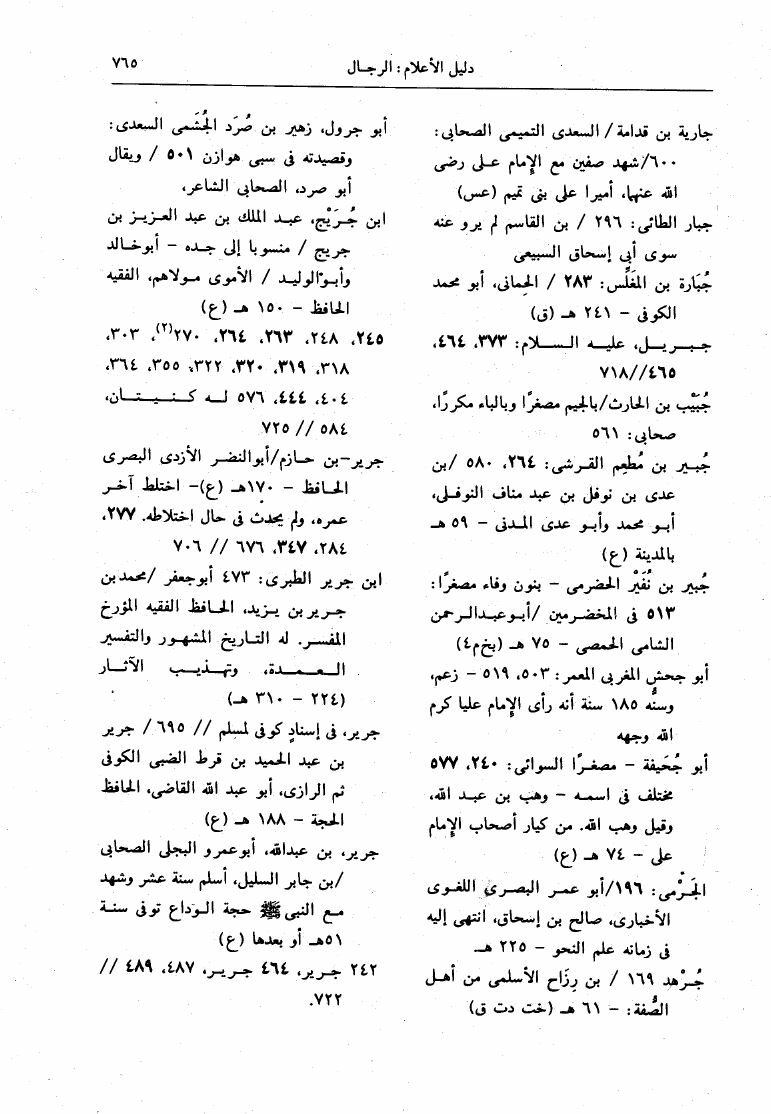 دليل الأعلام : الرجال
٧٦٥
جارية بن قدامة / السعدى التميمى الصحابى :
٦٠٠/شهد صفين مع الإمام على رضى
الله عنهما، أميرا على بنى تميم (عس)
جبار الطائى : ٢٩٦ / بن القاسم لم يرو عنه
سوى أبى إسحاق السبيعى
جُبَارة بن المُغَلِّس : ٢٨٣ / الحِمانى، أبو محمد
الكوفى – ٢٤١ هـ (ق)
جـبـريـل، عليـه الـسـلام : ٣٧٣، ٤٦٤،
٤٦٥//٧١٨
جُبَيْب بن الحارث/بالجيم مصغرًا وبالباء مكررًا،
صحابى : ٥٦١
جُبـير بن مُطعِم القـرشى : ٢٦٤، ٥٨٠ /بن
عدى بن نوفل بن عبد مناف النوفـلى،
أبـو محمد وأبـو عدى المـدنى – ٥٩ هـ
بالمدينة (ع)
جُبير بن نُفَيْر الحضرمى – بنون وفاء مصغرًا :
٥١٣ فى المخضـرمين /أبـوعبـدالـرحمن
الشامى الحمصى – ٧٥ هـ (بخ م٤)
أبو جحش المغربى المعمر : ٥٠٣، ٥١٩ – زعم،
وسنُّه ١٨٥ سنة أنه رأى الإمام عليا كرم
الله وجهه
أبو جُحَيفة – مصغـرًا السوائى : ٢٤٠، ٥٧٧
مختلف فى اسمـه – وهب بن عبـد الله،
وقيل وهب الله. من كبار أصحاب الإمام
على – ٧٤ هـ (ع)
الجَرْمى : ١٩٦/أبو عمـر البصـرى اللغـوى
الأخبارى، صالح بن إسحاق، انتهى إليه
فى زمانه علم النحو – ٢٢٥ هـ
جُـرْهد ١٦٩ / بن رِزَاح الأسلمى من أهـل
الصُّفة : – ٦١ هـ (خت دت ق)
أبو جرول، زهير بن صُرَد الجُشَمى السعدى :
وقصيدته فى سبى هوازن ٥٠١ / ويقال
أبو صرد، الصحابى الشاعر،
ابن جُرَيْج، عبـد الملك بن عبد العـزيـز بن
جريج / منسوبا إلى جـده – أبوخـالد
وأبـوالوليـد / الأموى مـولاهم، الفقيه
الحافظ – ١٥٠ هـ (ع)
٢٤٥، ٢٤٨، ٢٦٣، ٢٦٤، ٢٧٠(٢)، ٣٠٣،
٣١٨، ٣١٩، ٣٢٠، ٣٢٢، ٣٥٥، ٣٦٤،
٤٠٤، ٤٤٤، ٥٧٦ لـه كـنـيـتـان،
٥٨٤ // ٧٢٥
جرير-بن حـازم/أبوالنضر الأزدى البصرى
الحـافظ – ١٧٠هـ (ع)– اختلط آخـر
عمره، ولم يحدث فى حال اختلاطه. ٢٧٧،
٢٨٤، ٣٤٧، ٦٧٦ // ٧٠٦
ابن جرير الطبرى : ٤٧٣ أبوجعفر /محمدبن
جـريربن يـزيد، الحـافظ الفقيه المؤرخ
المفسر. له التـاريخ المشهـور والتفسير
الـعـمـدة، وتهـذيـب الآثـار
(٢٢٤ – ٣١٠ هـ)
جرير، فى إسنادٍ كوفى لمسلم // ٦٩٥ / جرير
بن عبد الحميد بن قرط الضبى الكوفى
ثم الرازى، أبو عبد الله القاضى، الحافظ
الحجة – ١٨٨ هـ (ع)
جرير، بن عبدالله، أبوعمرو البجلى الصحابى
/بن جابر السليل، أسلم سنة عشر وشهد
مـع النبى ﷺ حجة الـوداع توفى سنـة
٥١هـ أو بعدها (ع)
٢٤٢ جرير، ٤٦٤ جريـر، ٤٨٧، ٤٨٩ //
٧٢٢.